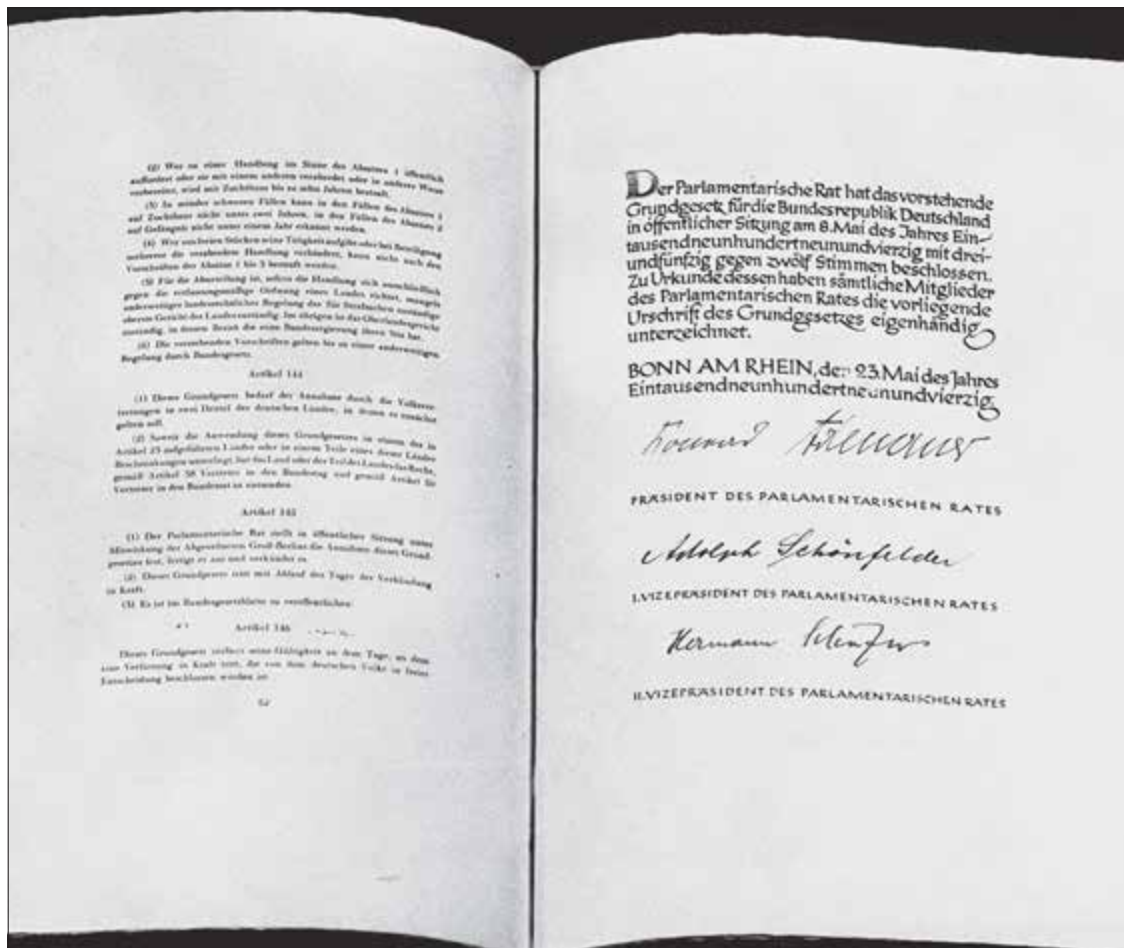 (2) Wer zu einer Handlung im Sinne des Absatzes 1 öffentlich
auffordert oder sie mit einem anderen verabredet oder in anderer Weise
vorbereitet, wird mit Zuchthaus bis zu zehn Jahren bestraft.
(3) In minder schweren Fällen kann in den Fällen des Absatzes 1
auf Zuchthaus nicht unter zwei Jahren, in den Fällen des Absatzes 2
auf Gefängnis nicht unter einem Jahr erkannt werden.
(4) Wer aus freien Stücken seine Tätigkeit aufgibt oder bei Beteiligung
mehrerer die verabredete Handlung verhindert, kann nicht nach den
Vorschriften der Absätze 1 bis 3 bestraft werden.
(5) Für die Aburteilung ist, sofern die Handlung sich ausschließlich
gegen die verfassungsmäßige Ordnung eines Landes richtet, mangels
anderweitiger landesrechtlicher Regelung das für Strafsachen zuständige
oberste Gericht des Landes zuständig. Im übrigen ist das Oberlandesgericht
zuständig, in dessen Bezirk die erste Bundesregierung ihren Sitz hat.
(6) Die vorstehenden Vorschriften gelten bis zu einer anderweitigen
Regelung durch Bundesgesetz.
Artikel 144
(1) Dieses Grundgesetz bedarf der Annahme durch die Volksver-
tretungen in zwei Drittel der deutschen Länder, in denen es zunächst
gelten soll.
(2) Soweit die Anwendung dieses Grundgesetzes in einem der in
Artikel 23 aufgeführten Länder oder in einem Teile eines dieser Länder
Beschränkungen unterliegt, hat das Land oder der Teil des Landes das Recht,
gemäß Artikel 38 Vertreter in den Bundestag und gemäß Artikel 50
Vertreter in den Bundesrat zu entsenden.
Artikel 145
(1) Der Parlamentarische Rat stellt in öffentlicher Sitzung unter
Mitwirkung der Abgeordneten Groß-Berlins die Annahme dieses Grund-
gesetzes fest, fertigt es aus und verkündet es.
(2) Dieses Grundgesetz tritt mit Ablauf des Tages der Verkündung
in Kraft.
(3) Es ist im Bundesgesetzblatte zu veröffentlichen.
Artikel 146
Dieses Grundgesetz verliert seine Gültigkeit an dem Tage, an dem
eine Verfassung in Kraft tritt, die von dem deutschen Volke in freier
Entscheidung beschlossen worden ist.
Der Parlamentarische Rat hat das vorstehende
Grundgesetz für die Bundesrepublik Deutschland
in öffentlicher Sitzung am 8. Mai des Jahres Ein-
tausendneunhundertneunundvierzig mit drei-
undfünfzig gegen zwölf Stimmen beschlossen.
Zu Urkunde dessen haben sämtliche Mitglieder
des Parlamentarischen Rates die vorliegende
Urschrift des Grundgesetzes eigenhändig
unterzeichnet.
BONN AM RHEIN, den 23. Mai des Jahres
Eintausendneunhundertneunundvierzig.
Konrad Adenauer
PRÄSIDENT DES PARLAMENTARISCHEN RATES
Adolph Schönfelder
I. VIZEPRÄSIDENT DES PARLAMENTARISCHEN RATES
Hermann Schäfer
II. VIZEPRÄSIDENT DES PARLAMENTARISCHEN RATES